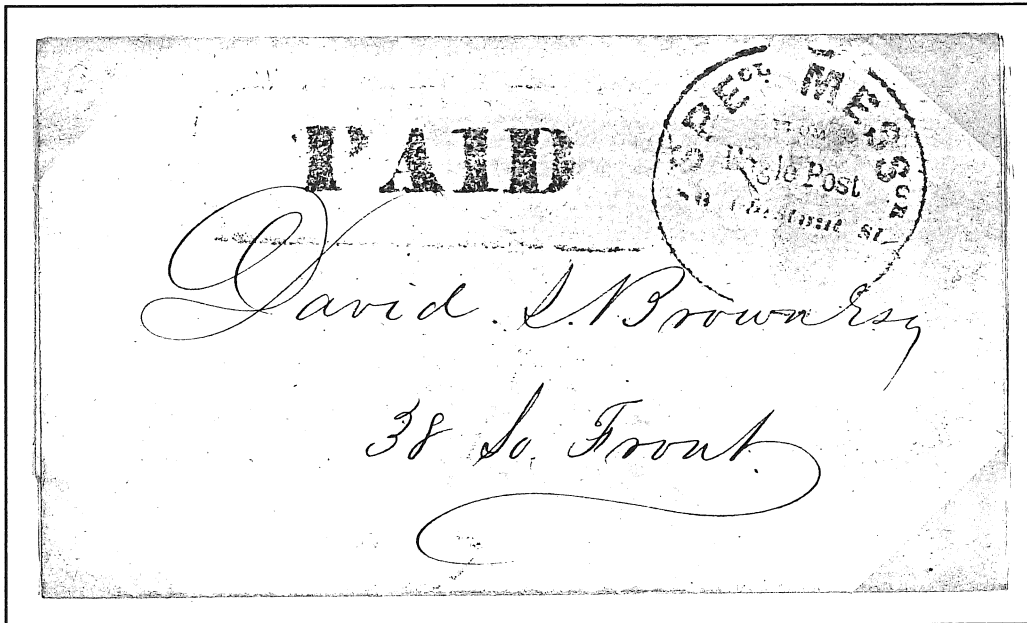 PAID
SPECL MESSGR
FROM
Eagle Post
Chestnut St
David. S. Brown Esq
38 So. Front.